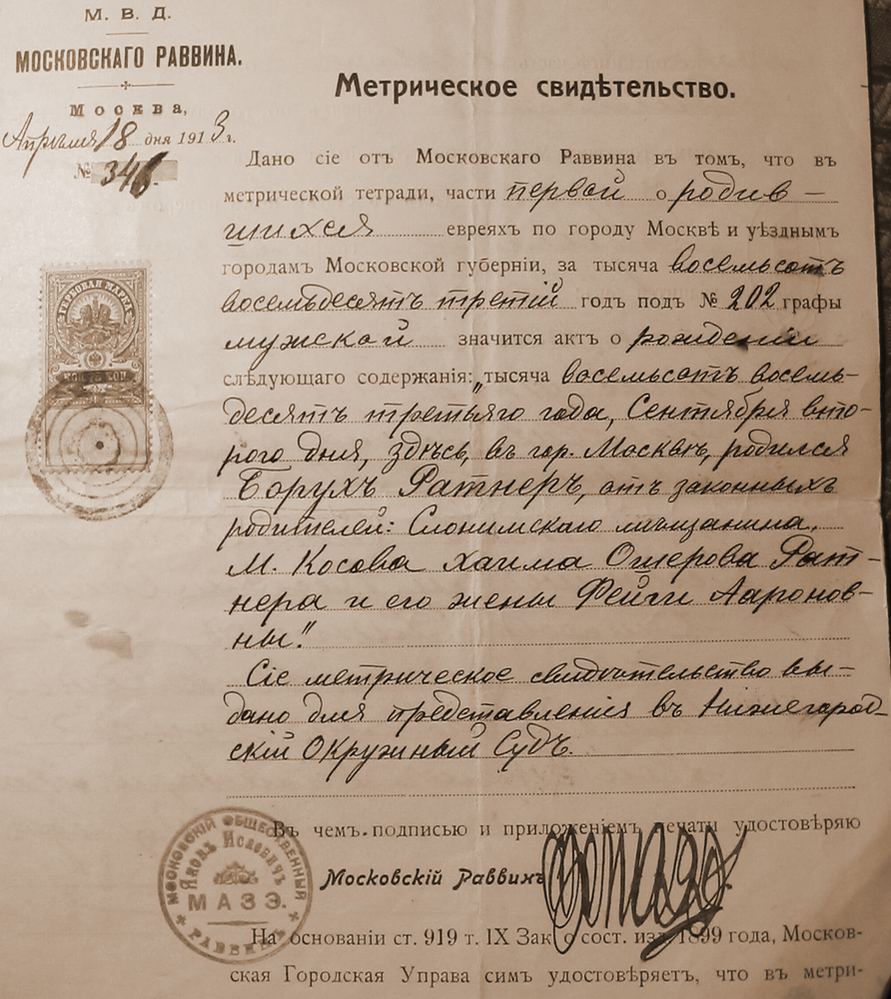 М. В. Д.
МОСКОВСКАГО РАВВИНА.
Москва,
Апреля 18 дня 1913 г.
№ 346.
Метрическое свидѣтельство.
Дано сіе отъ Московскаго Раввина въ томъ, что въ
метрической тетради, части первой о родив-
шихся евреяхъ по городу Москвѣ и уѣзднымъ
городамъ Московской губерніи, за тысяча восемьсотъ
восемьдесятъ третій годъ подъ № 202 графы
мужской значится актъ о рожденіи
слѣдующаго содержанія: „тысяча восемьсотъ восемь-
десятъ третьяго года, Сентября вто-
рого дня, здѣсь, въ гор. Москвѣ, родился
Борухъ Ратнеръ, отъ законныхъ
родителей: Слонимскаго мѣщанина,
М. Косова Хаима Ошерова Рат-
нера и его жены Фейги Ааронов-
ны."
Сіе метрическое свидѣтельство вы-
дано для представленія въ Нижегород-
скій Окружный Судъ.
Въ чемъ подписью и приложеніемъ печати удостовѣряю
Московскій Раввинъ
На основаніи ст. 919 т. IX Зак. о сост. изд. 1899 года, Москов-
ская Городская Управа симъ удостовѣряетъ, что въ метри-
ГЕРБОВАЯ МАРКА
МОСКОВСКІЙ ОБЩЕСТВЕННЫЙ
РАВВИНЪ
Яковъ Исаевичъ
МАЗЭ.